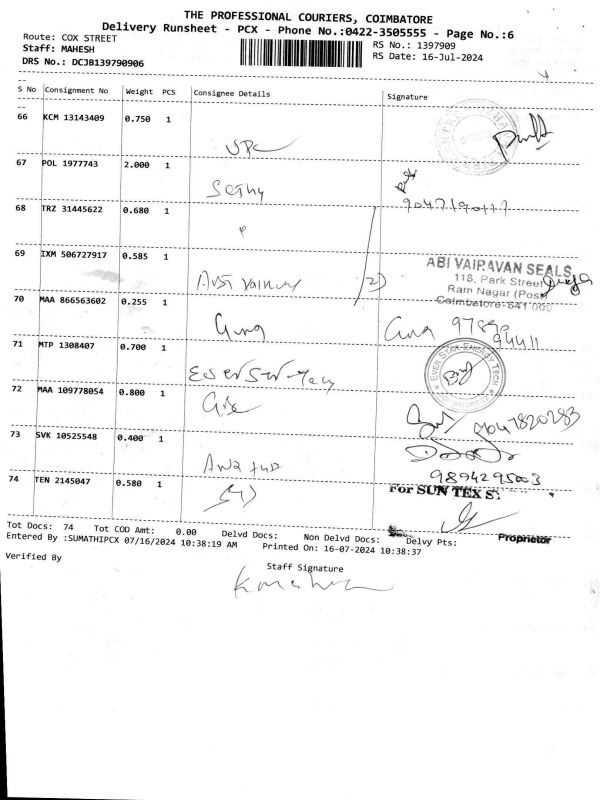 THE PROFESSIONAL COURIERS, COIMBATORE
Delivery Runsheet - PCX - Phone No.:0422-3505555 - Page No.:6
Route: COX STREET
Staff: MAHESH
DRS No.: DCJB139790906
RS No.: 1397909
RS Date: 16-Jul-2024
S No Consignment No Weight PCS Consignee Details Signature
66 KCM 13143409 0.750 1
67 POL 1977743 2.000 1
Sethy
68 TRZ 31445622 0.680 1
69 IXM 506727917 0.585 1
ABI VAIRAVAN SEALS
118, Park Street
Ram Nagar (Post)
Coimbatore-641 009
70 MAA 866563602 0.255 1
71 MTP 1308407 0.700 1
EVER STAR ENERGY TECH
72 MAA 109778054 0.800 1
73 SVK 10525548 0.400 1
9894295003
74 TEN 2145047 0.580 1
For SUN TEX
Proprietor
Tot Docs: 74 Tot COD Amt: 0.00 Delvd Docs: Non Delvd Docs: Delvy Pts:
Entered By :SUMATHIPCX 07/16/2024 10:38:19 AM Printed On: 16-07-2024 10:38:37
Verified By
Staff Signature